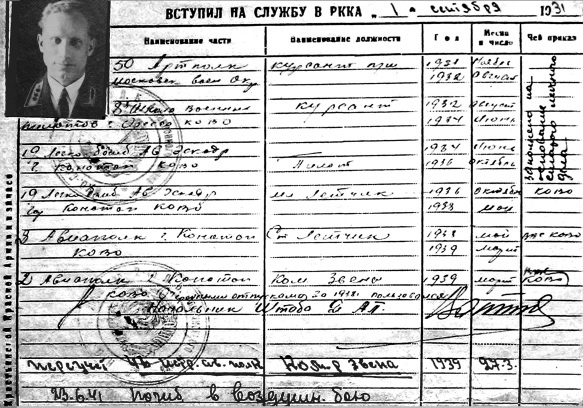 ВСТУПИЛ НА СЛУЖБУ В РККА „ 1 “ сентября 1931
Наименование части Наименование должности Год Месяц и число Чей приказ
50 Артполк курсант 1931 Ноябрь
московск воен окр 1932 Август
8 Школа военных курсант 1932 Август
г. Одесса КОВО 1934 Июнь
19 Легко бомб Ав Эскадр 1934 Июнь
г Конотоп КОВО Пилот 1936 октябрь
19 Легк бомб Ав Эскадр мл Летчик 1936 октябрь КОВО
Конотоп КОВО 1938 май
3 Авиаполк г. Конотоп Ст Летчик 1938 май КОВО
КОВО 1939 март
2 Авиаполк г Конотоп Ком Звена 1939 март КОВО
КОВО отпуском за 1938
Начальник Штаба 2 АП
46 ав. полк звена 1939 27.3.
23.6.41 Погиб в воздушн. бою
Заполнено на основании личного дела
Красной Армии и запаса